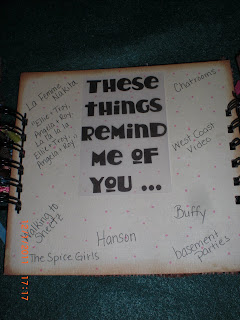 La Femme
Nakita
"Ellie + Trey,
Angela + Roy,
La la la la...
Ellie + Trey,
Angela + Roy."
THESE
THINGS
REMIND
ME OF
YOU ...
Chatrooms
West Coast
Video
Walking to
Sheetz
Hanson
Buffy
The Spice Girls
basement
parties
17:17